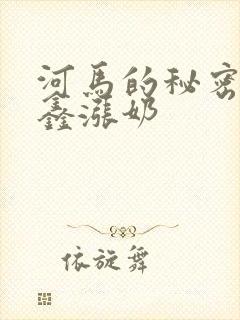 河马的秘密
鑫涨奶
依旋舞